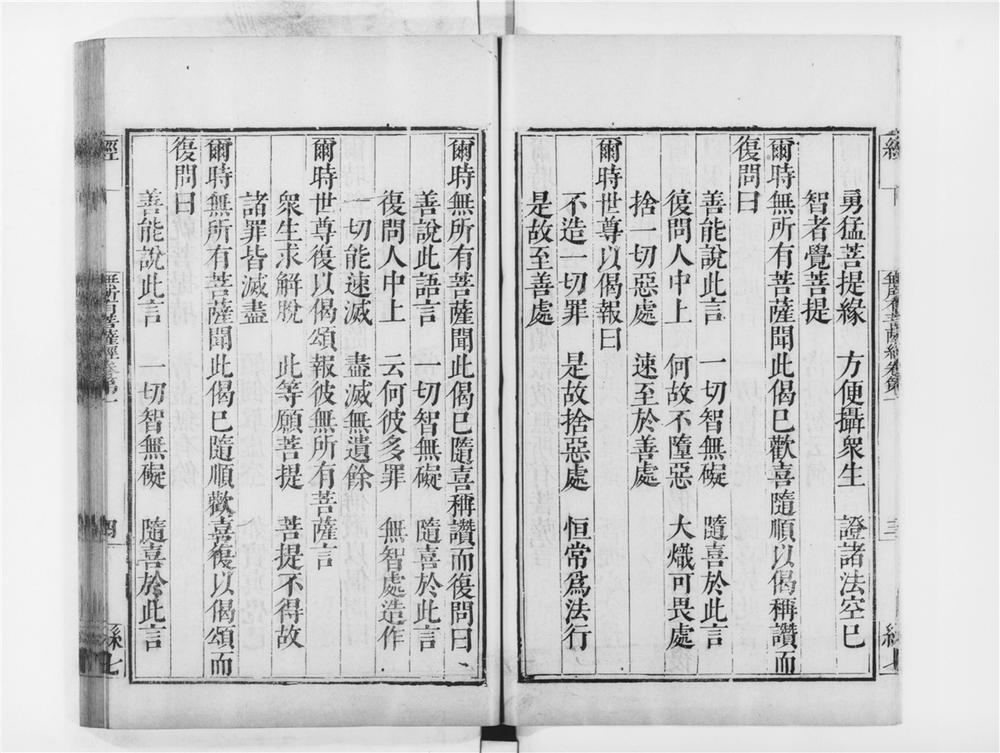 勇猛菩提緣　方便攝衆生　證諸法空已
智者覺菩提
爾時無所有菩薩聞此偈已歡喜隨順以偈稱讚而
復問曰
善能說此言　一切智無礙　隨喜於此言
復問人中上　何故不墮惡　大熾可畏處
捨一切惡處　速至於善處
爾時世尊以偈報曰
不造一切罪　是故捨惡處　恒常爲法行
是故至善處
爾時無所有菩薩聞此偈已隨喜稱讚而復問曰
善說此語言　一切智無礙　隨喜於此言
復問人中上　云何彼多罪　無智處造作
一切能速滅　盡滅無遺餘
爾時世尊復以偈頌報彼無所有菩薩言
衆生求解脫　此等願菩提　菩提不得故
諸罪皆滅盡
爾時無所有菩薩聞此偈已隨順歡喜復以偈頌而
復問曰
善能說此言　一切智無礙　隨喜於此言
經　無所有菩薩經卷第一　四